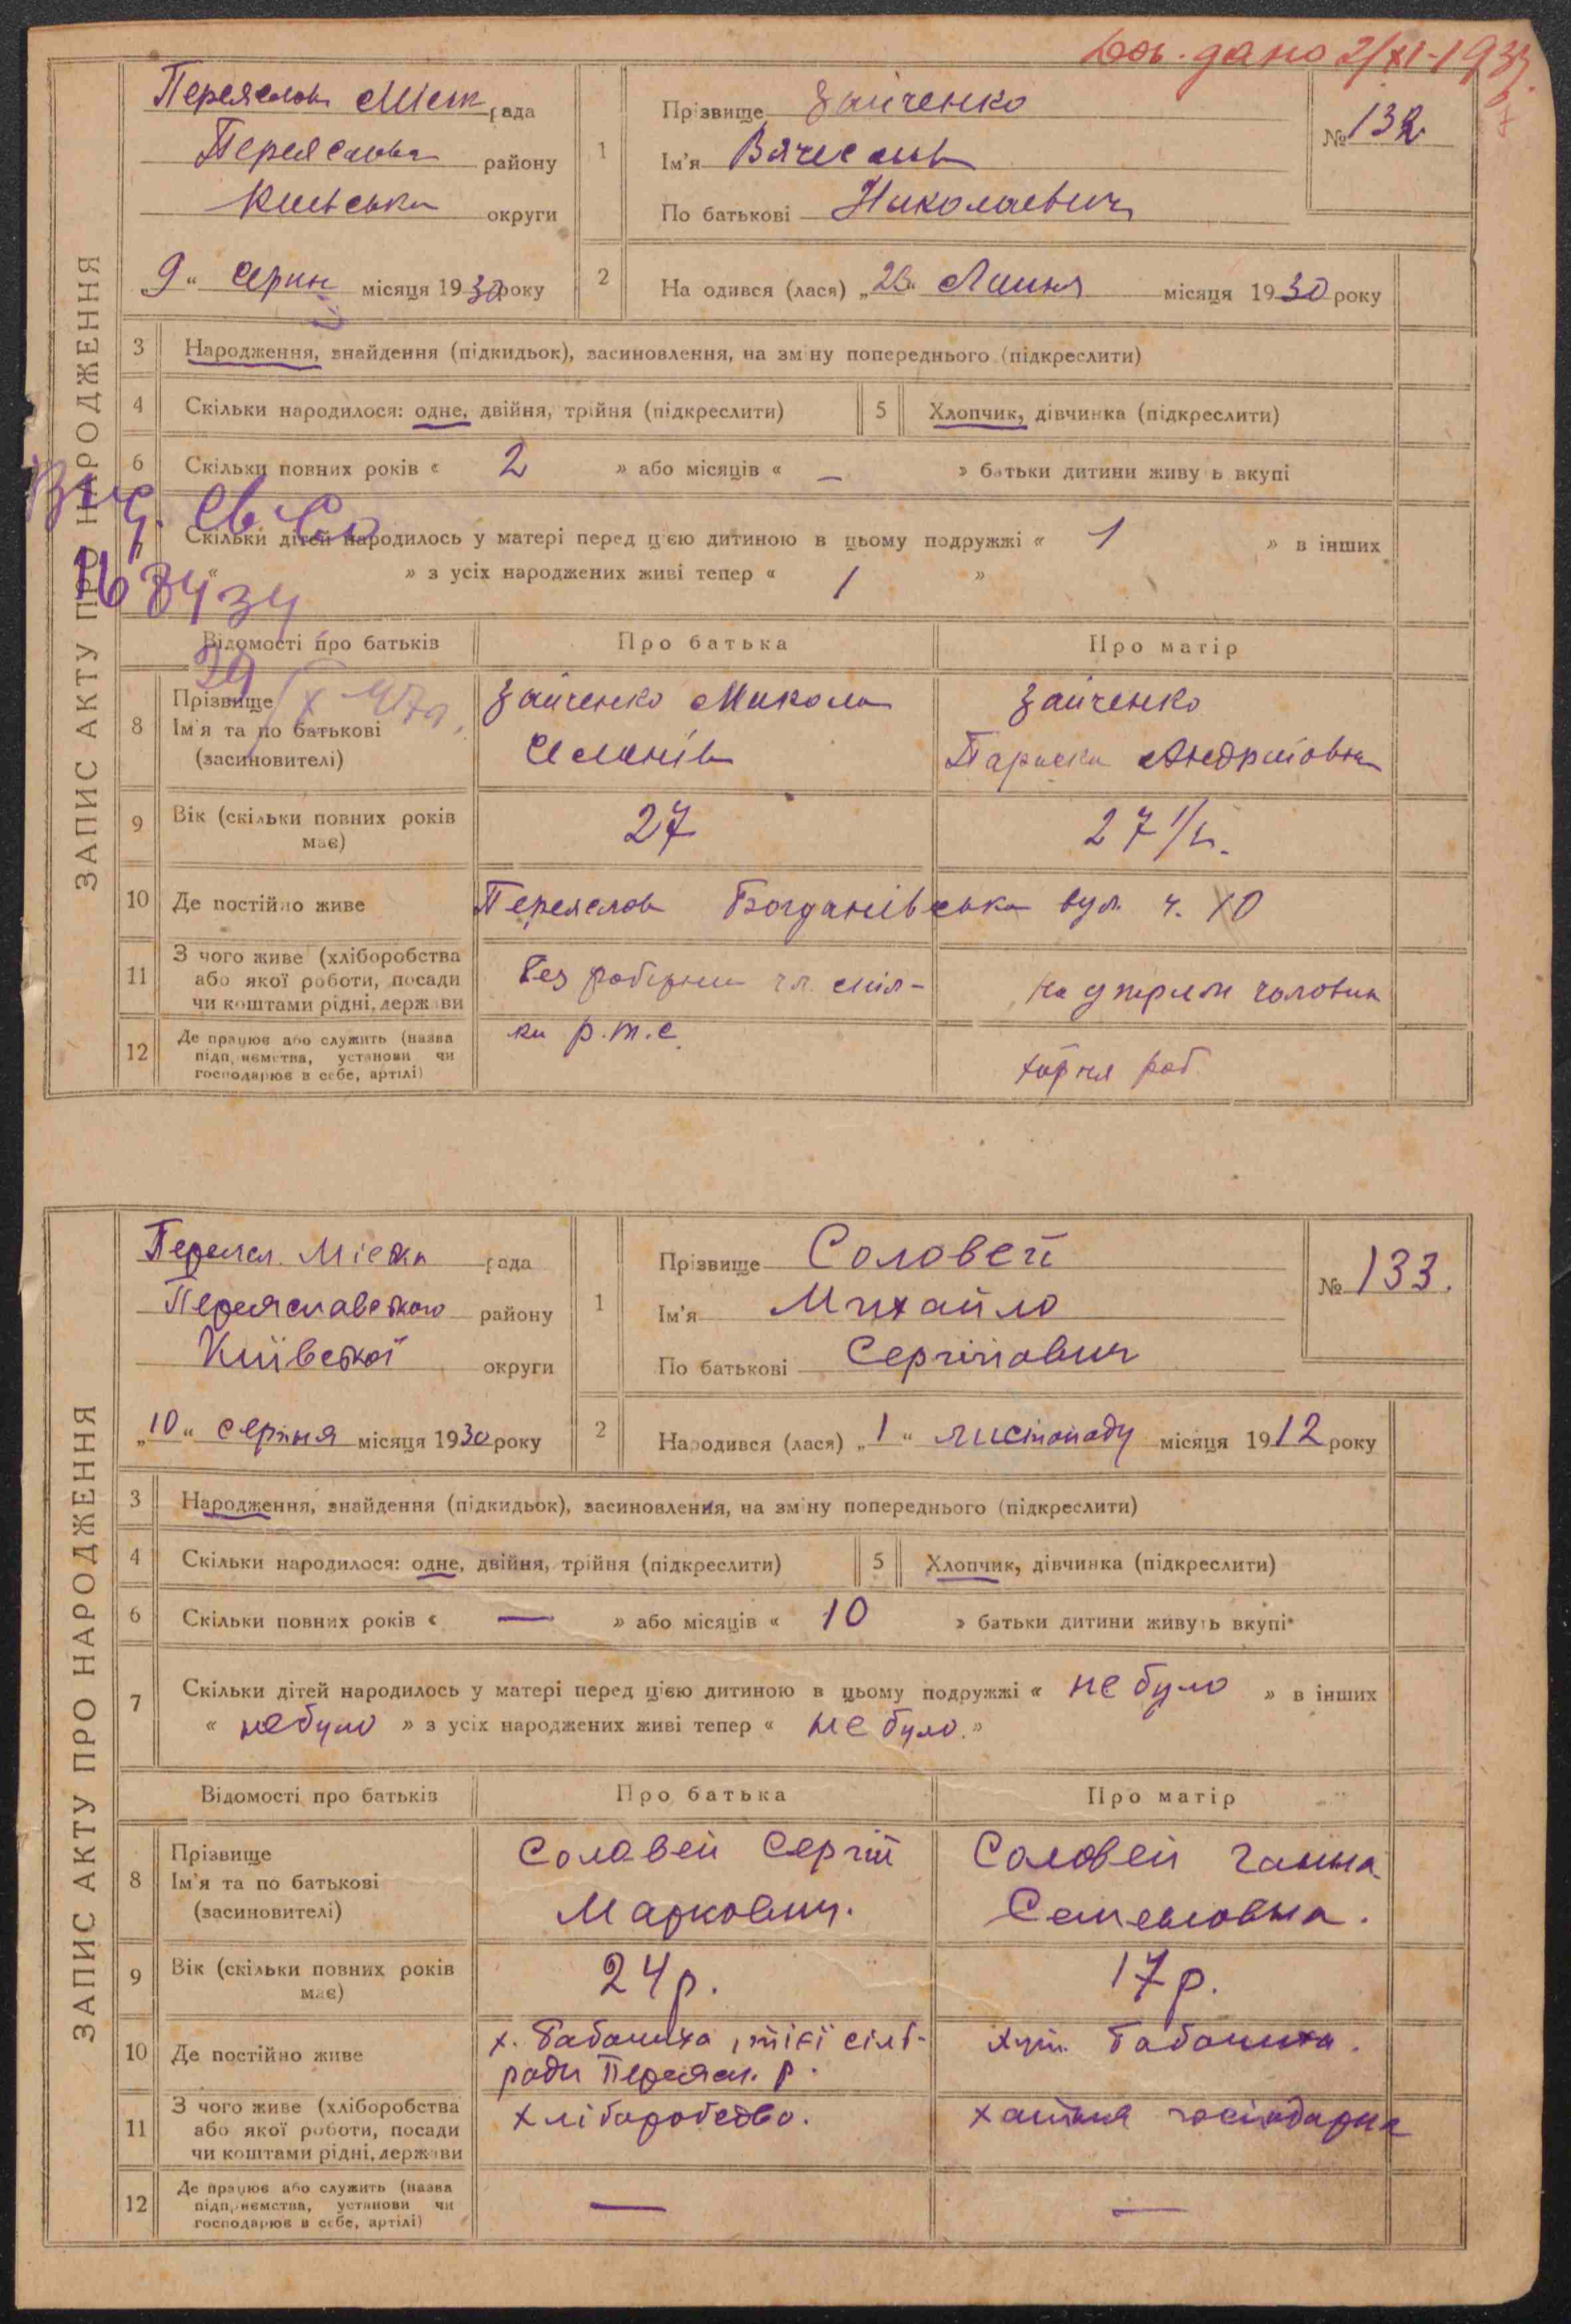 дано 2/XI-1933
ЗАПИС АКТУ ПРО НАРОДЖЕННЯ
Переяслав Міськ рада
району
округи
„9“ Серпн місяця 1930 року
1
Прізвище Зайченко
Ім'я Вячеслав
По батькові Николаевич
№ 132
2
Народився (лася) „ “ Липня місяця 1930 року
3 Народження, знайдення (підкидьок), засиновлення, на зміну попереднього (підкреслити)
4 Скільки народилося: одне, двійня, трійня (підкреслити)
5 Хлопчик, дівчинка (підкреслити)
6 Скільки повних років « 2 » або місяців « – » батьки дитини живуть вкупі
Скільки дітей народилось у матері перед цією дитиною в цьому подружжі « 1 » в інших
« » з усіх народжених живі тепер « 1 »
Відомості про батьків Про батька Про матір
8 Прізвище Ім'я та по батькові (засиновителі)
Зайченко Микола
Зайченко
Параска Андріївна
9 Вік (скільки повних років має) 27 27
10 Де постійно живе Переяслав Богданівська вул. ч. 10
11 З чого живе (хліборобства або якої роботи, посади чи коштами рідні, держави
Без
на утрим чоловіка
12 Де працює або служить (назва підприємства, установи чи господарює в себе, артілі)
р.т.с.
хатня роб.
ЗАПИС АКТУ ПРО НАРОДЖЕННЯ
Переясл. Міська рада
Переяславського району
Київської округи
„10“ серпня місяця 1930 року
1
Прізвище Соловей
Ім'я Михайло
По батькові Сергійович
№ 133.
2
Народився (лася) „1“ листопаду місяця 1912 року
3 Народження, знайдення (підкидьок), засиновлення, на зміну попереднього (підкреслити)
4 Скільки народилося: одне, двійня, трійня (підкреслити)
5 Хлопчик, дівчинка (підкреслити)
6 Скільки повних років « — » або місяців « 10 » батьки дитини живуть вкупі
7 Скільки дітей народилось у матері перед цією дитиною в цьому подружжі « не було » в інших
« не було » з усіх народжених живі тепер « не було. »
Відомості про батьків Про батька Про матір
8 Прізвище Ім'я та по батькові (засиновителі)
Соловей Сергій
Маркович.
Соловей Ганна
Семеновна.
9 Вік (скільки повних років має) 24 р. 17 р.
10 Де постійно живе
х. Бабачиха, тієї сіль-
ради Переясл. р.
хут. Бабачиха.
11 З чого живе (хліборобства або якої роботи, посади чи коштами рідні, держави
хліборобство.
хатня господарка
12 Де працює або служить (назва підприємства, установи чи господарює в себе, артілі)
— —